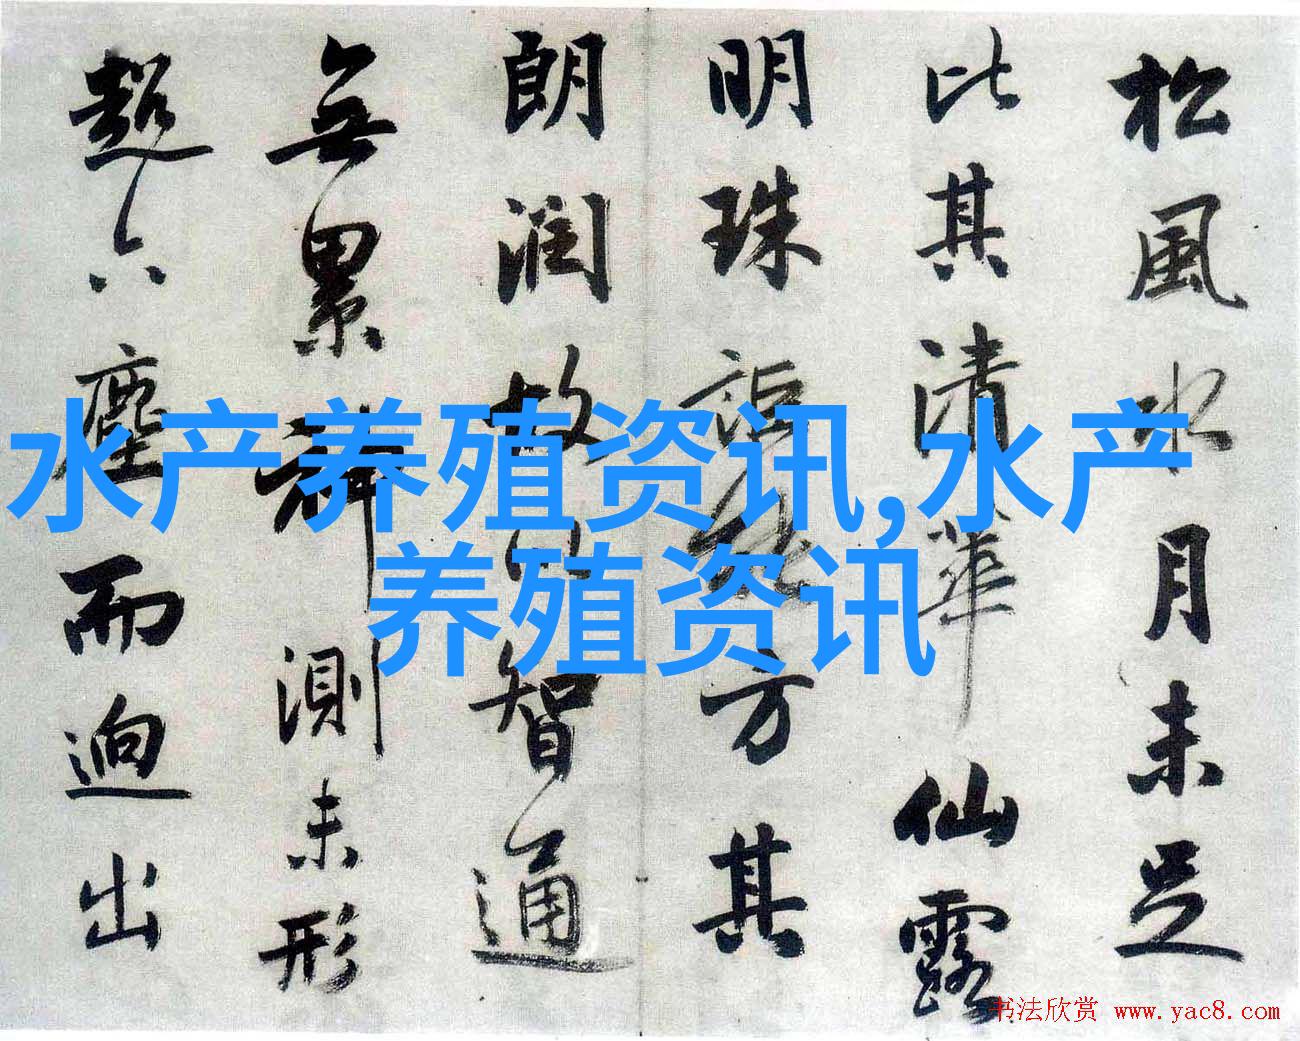 松風水月未足
比其清華仙露
明珠詎能方其
朗潤故以智通
無累神測未形
超六塵而迥出
水产养殖资讯,水产
养殖资讯
书法欣赏 www.yac8.com